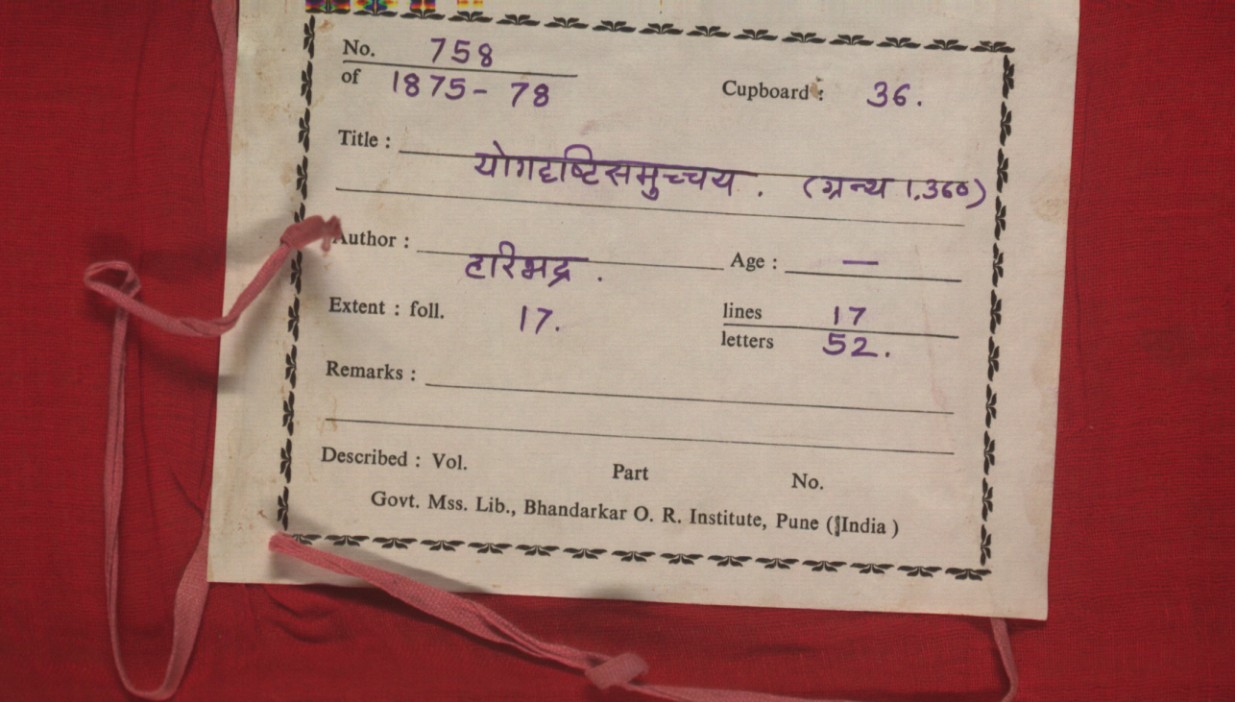 No. 758
of 1875-78 Cupboard : 36.
Title : योगदृष्टिसमुच्चय. (ग्रन्थ 1,360)
Author : हरिभद्र. Age : —
Extent : foll. 17. lines 17
letters 52.
Remarks :
Described : Vol. Part No.
Govt. Mss. Lib., Bhandarkar O. R. Institute, Pune (India )